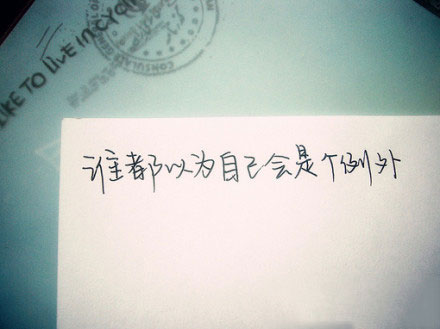 LIKE TO LIVE IN
CONSULA
谁都以为自己会是个例外